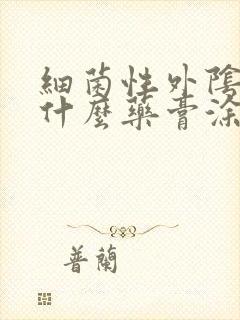 細菌性外陰
什麼藥膏涂
普蘭